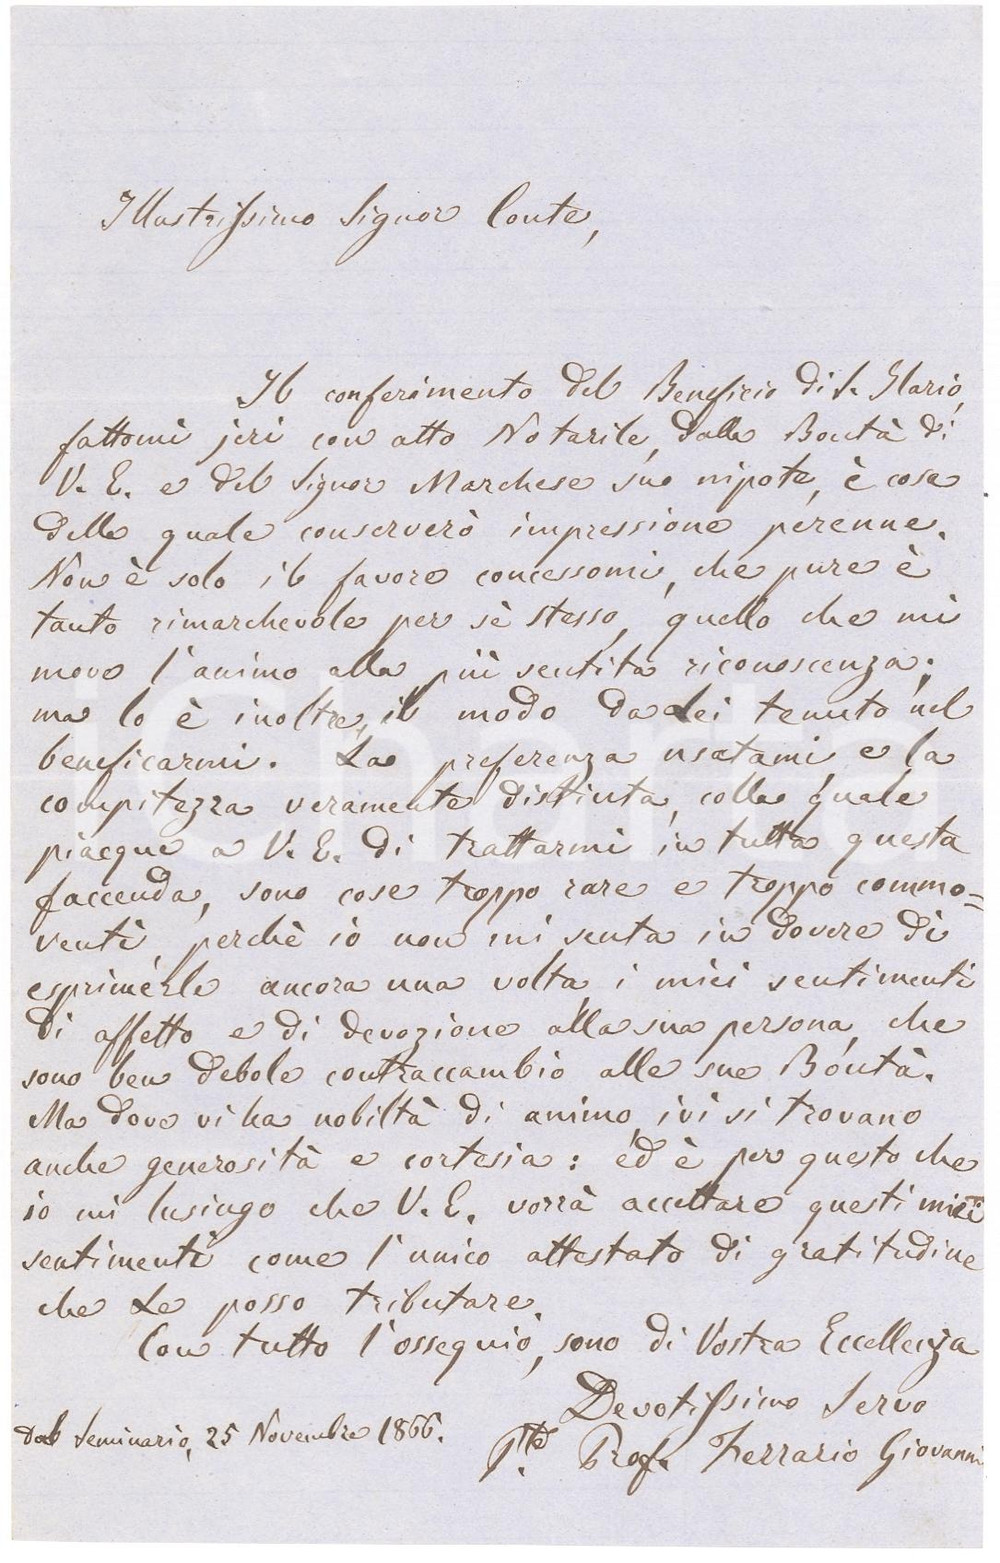 Illustrissimo Signor Conte,
Il conferimento del Beneficio di S. Ilario,
fattomi jeri con atto Notarile, dalla Bontà di
V. E. e del Signor Marchese suo nipote, è cosa
della quale conserverò impressione perenne.
Non è solo il favore concessomi, che pure è
tanto rimarchevole per sè stesso, quello che mi
move l'animo alla più sentita riconoscenza;
ma lo è inoltre, il modo da Lei tenuto nel
beneficarmi. La preferenza usatami e la
compitezza veramente distinta, colla quale
piacque a V. E. di trattarmi in tutta questa
faccenda, sono cose troppo rare e troppo commo=
venti, perchè io non mi senta in dovere di
esprimerle ancora una volta i miei sentimenti
di affetto e di devozione alla sua persona, che
sono ben debole contraccambio alle sue Bontà.
Ma dove vi ha nobiltà di animo, ivi si trovano
anche generosità e cortesia: ed è per questo che
io mi lusingo che V. E. vorrà accettare questi miei
sentimenti come l'unico attestato di gratitudine
che Le posso tributare.
Con tutto l'ossequio, sono di Vostra Eccellenza
Devotissimo Servo
Dal Seminario, 25 Novembre 1866.
Pte. Prof. Ferrario Giovanni
iCharta